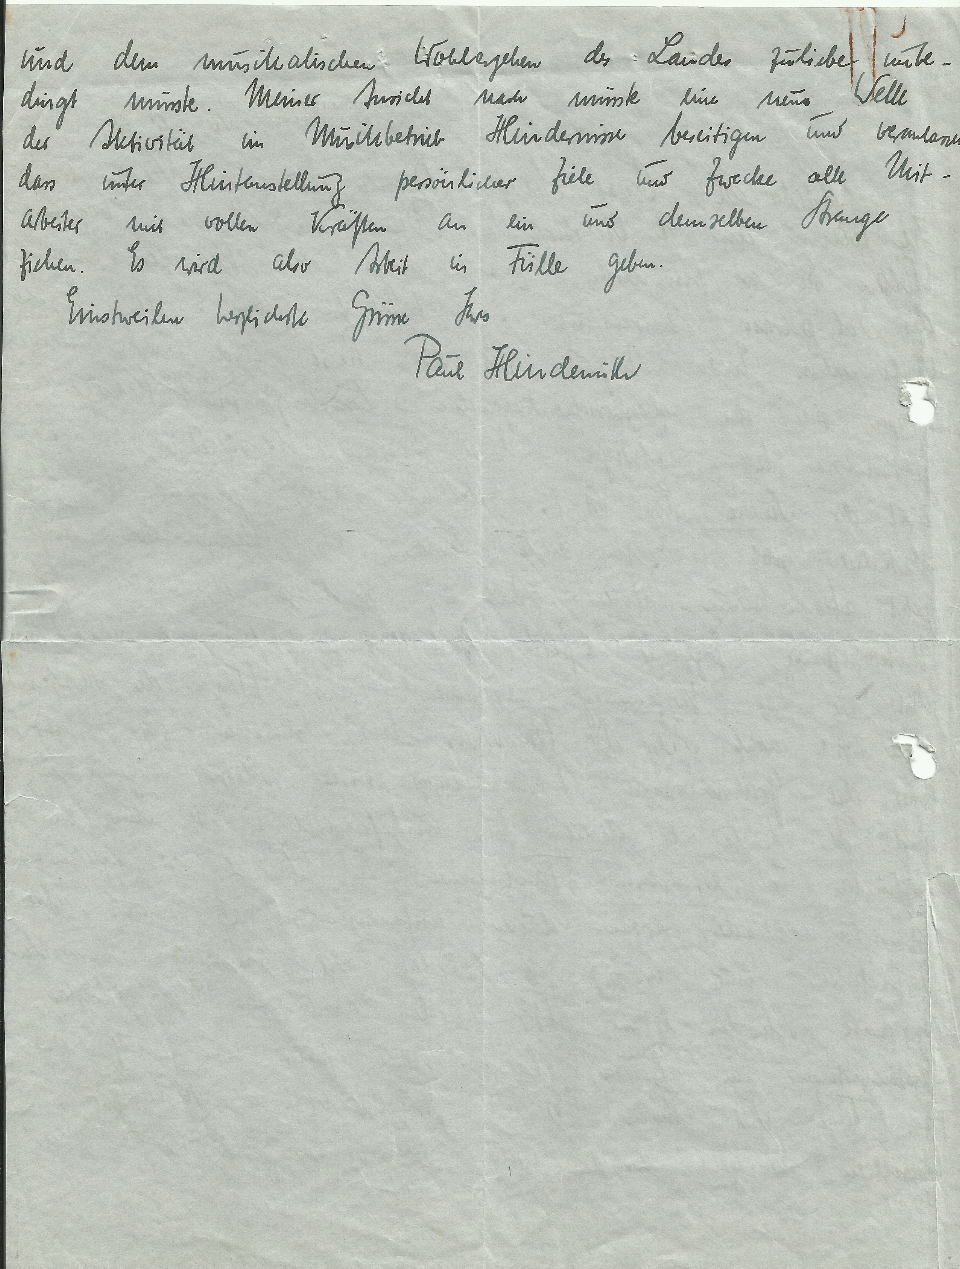 und dem musikalischen Wohlergehen des Landes zuliebe unbe-
dingt müsste. Meiner Ansicht nach müsste eine neue Welle
der Aktivität im Musikbetrieb Hindernisse beseitigen und veranlassen
dass unter Hintenstellung persönlicher Ziele und Zwecke alle Mit-
arbeiter mit vollen Kräften an ein und demselben Strange
ziehen. Es wird also Arbeit in Fülle geben.
Einstweilen herzlichste Grüsse Ihres
Paul Hindemith